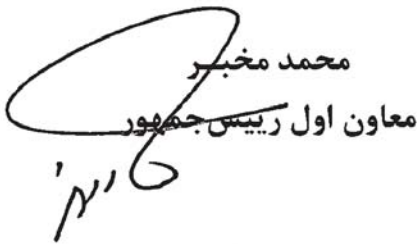 محمد مخبر
معاون اول رییس‌جمهور